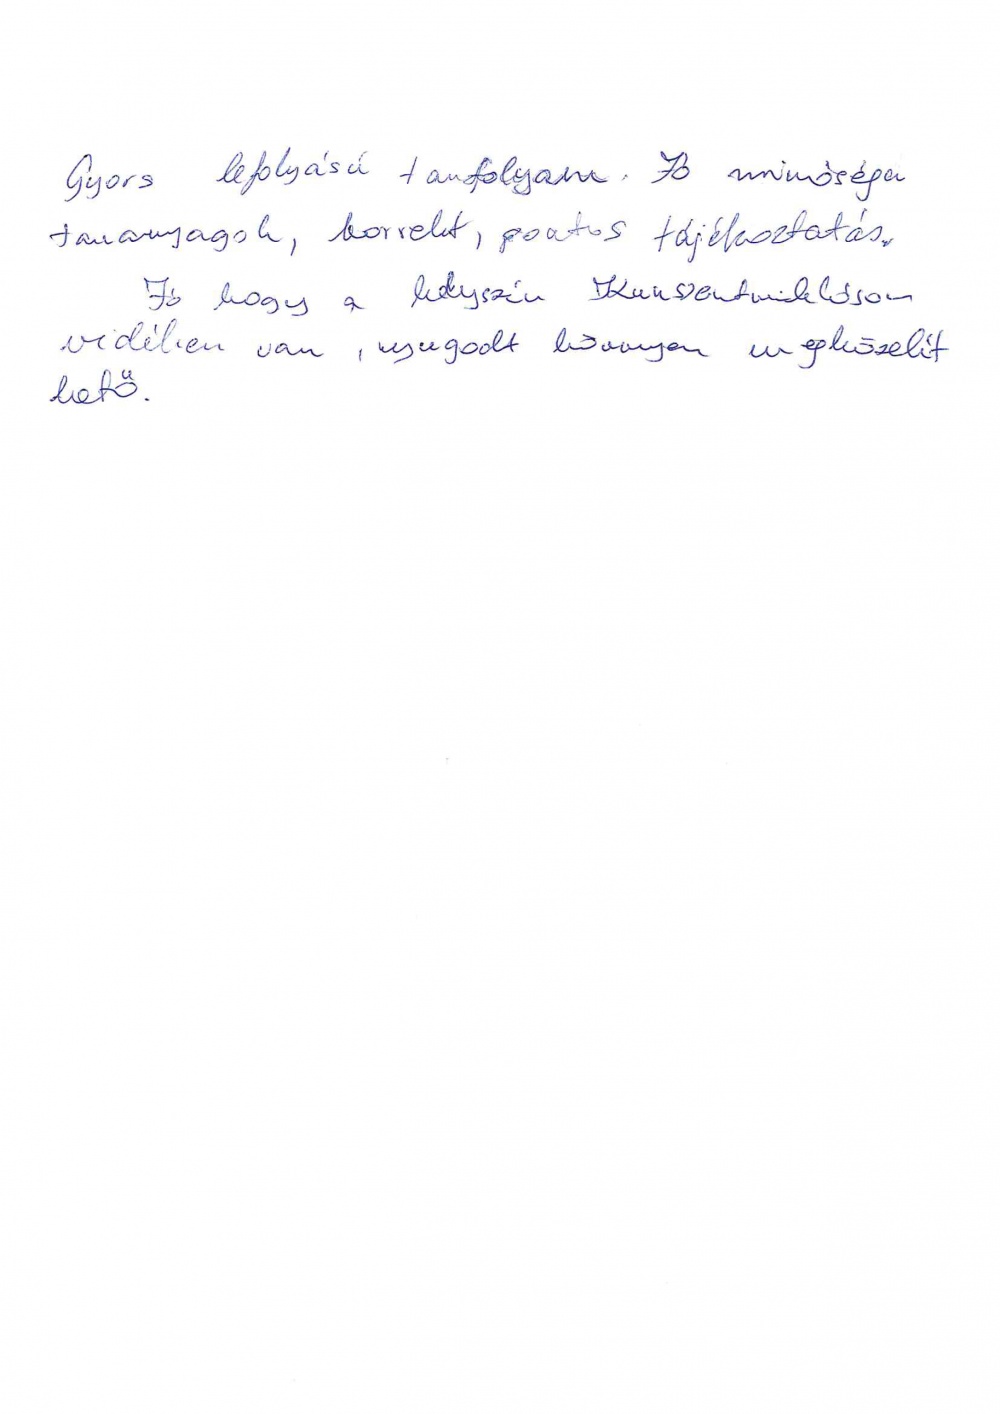 Gyors lefolyású tanfolyam. Jó minőségű
tananyagok, korrekt, pontos tájékoztatás.
Jó hogy a helyszín Kunszentmiklóson
vidéken van, nyugodt könnyen megközelít
hető.